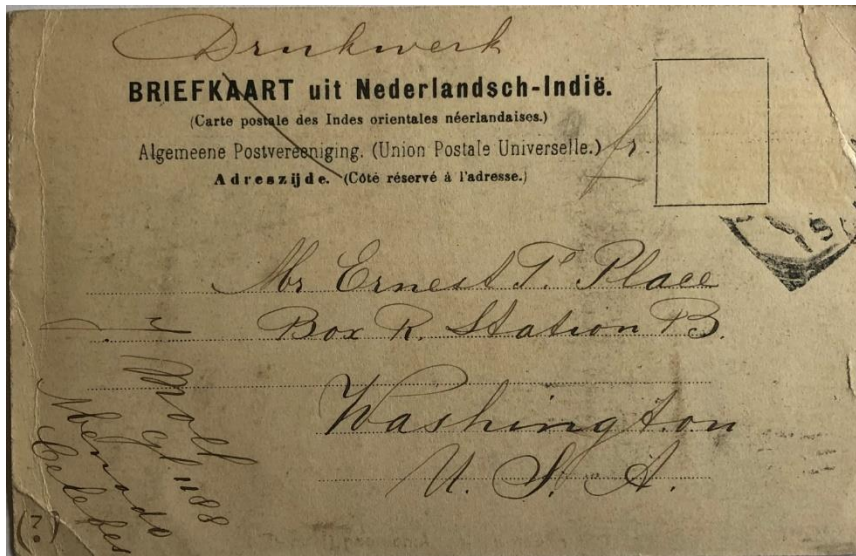 Drukwerk
BRIEFKAART uit Nederlandsch-Indië.
(Carte postale des Indes orientales néerlandaises.)
Algemeene Postvereeniging. (Union Postale Universelle.)
fr.
Adreszijde. (Côté réservé à l'adresse.)
Mr Ernest T. Place
Box R. Station B.
Washington
U. S. A.
Moll
1188
Menado
Celebes
(?)